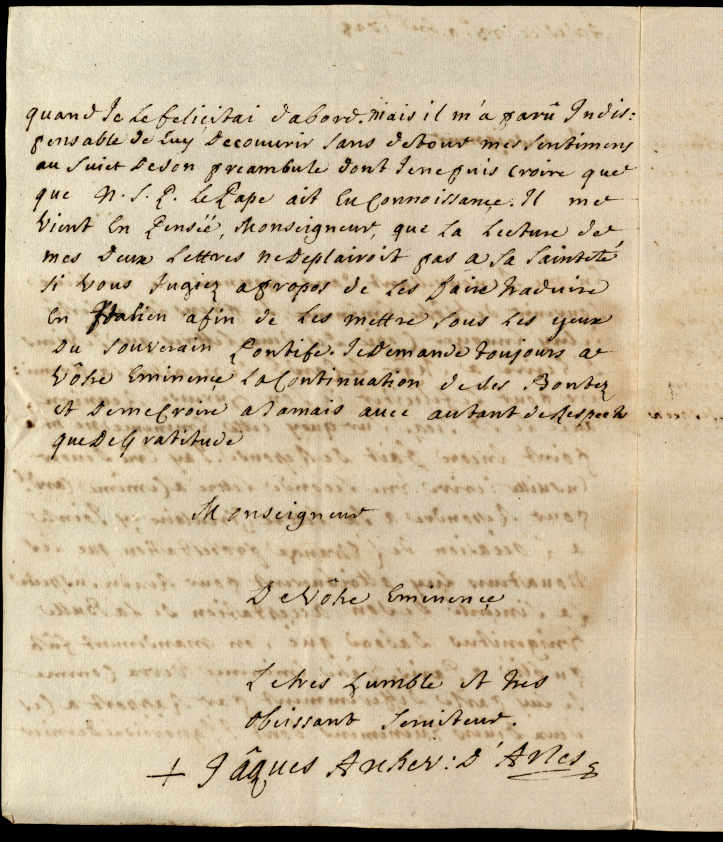 quand Je Le felicitai d'abord. Mais il m'a parû Indis:
pensable de Luy Decouvrir sans detour mes sentimens
au Suiet De son preambule dont Je ne puis croire que
que N. S. P. Le Pape ait Eu Connoissançe. Il me
Vient En Penseé, Monseigneur, que La Lecture de
mes Deux Lettres ne Deplairoit pas a Sa Sainteté
si Vous Jugiez a propos de Les faire traduire
En Italien afin de Les mettre sous Les yeux
Du Souverain Pontife. Je Demande toujours a
Vôtre Eminençe La Continuation de ses Bontez
et De me Croire a Jamais avec autant de Respect
que De Gratitude
Monseigneur
De Vôtre Eminençe
Le tres humble et tres
obeissant serviteur.
+ Jâques Archev: D'Arles